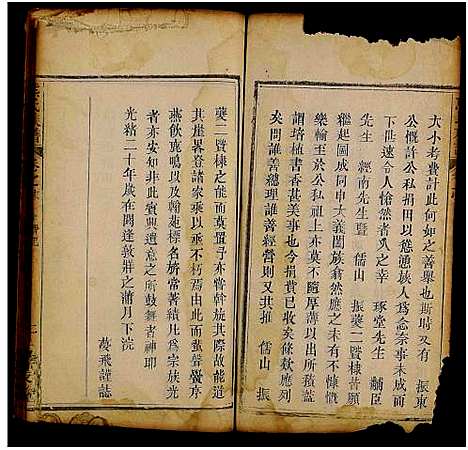 大小考費計此何如之善舉也斯時又有　振東
公慨許公私捐田以慫通族人爲忘宗事未成而
下世遠令人愴然者久之幸　琢堂先生　黼臣
先生　經南先生暨　儒山　振蘷二暨棣昔願
繼起圖成阿申大義闔族翕然應之未有不踴
樂輸至於公私祖上亦莫不隨厚薄以出所積蓋
謂培植書香甚美事也今捐貲已收矣條欵應列
矣問誰善總理誰善經營則又共推　儒山　振
蘷二暨棣之能而莫置予亦嘗斡旋其際故能道
其崖畧登諸家乘以垂不朽焉由此而蜚聲黌序
燕飲鹿鳴以及翰苑標名旂常著績凡爲宗族光
者亦安知非此賓興遺意之所鼓舞者神耶
光緒二十年歲在閼逢敦牂之蒲月下浣
飛謹誌